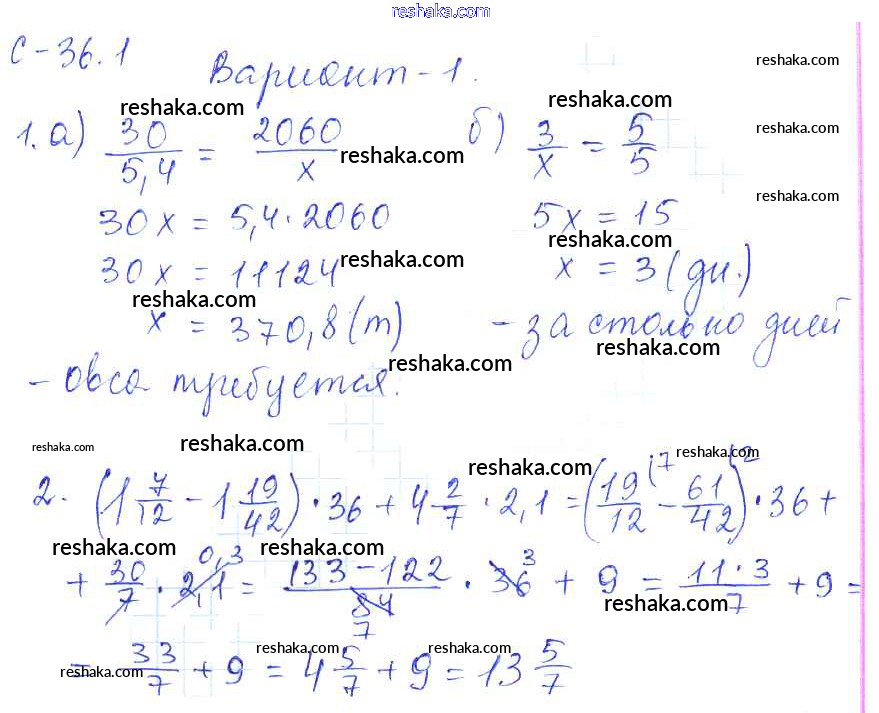 reshaka.com
С-36.1
Вариант-1.
reshaka.com reshaka.com reshaka.com
1. а) 30/5,4 = 2060/x б) 3/x = 5/5
reshaka.com reshaka.com
reshaka.com
30x = 5,4·2060 5x = 15
30x = 11124 x = 3 (дн.)
reshaka.com reshaka.com
reshaka.com
x = 370,8 (т) - за столько дней
reshaka.com reshaka.com
- овса требуется.
reshaka.com reshaka.com reshaka.com
reshaka.com
2. (1 7/12 - 1 19/42)·36 + 4 2/7 · 2,1 = (19/12 (7 - 61/42 (2)·36 +
reshaka.com reshaka.com
+ 30/7 · 2,1 0,3 = 133-122/84 7 · 36 3 + 9 = 11·3/7 + 9 =
reshaka.com
reshaka.com reshaka.com reshaka.com
= 33/7 + 9 = 4 5/7 + 9 = 13 5/7